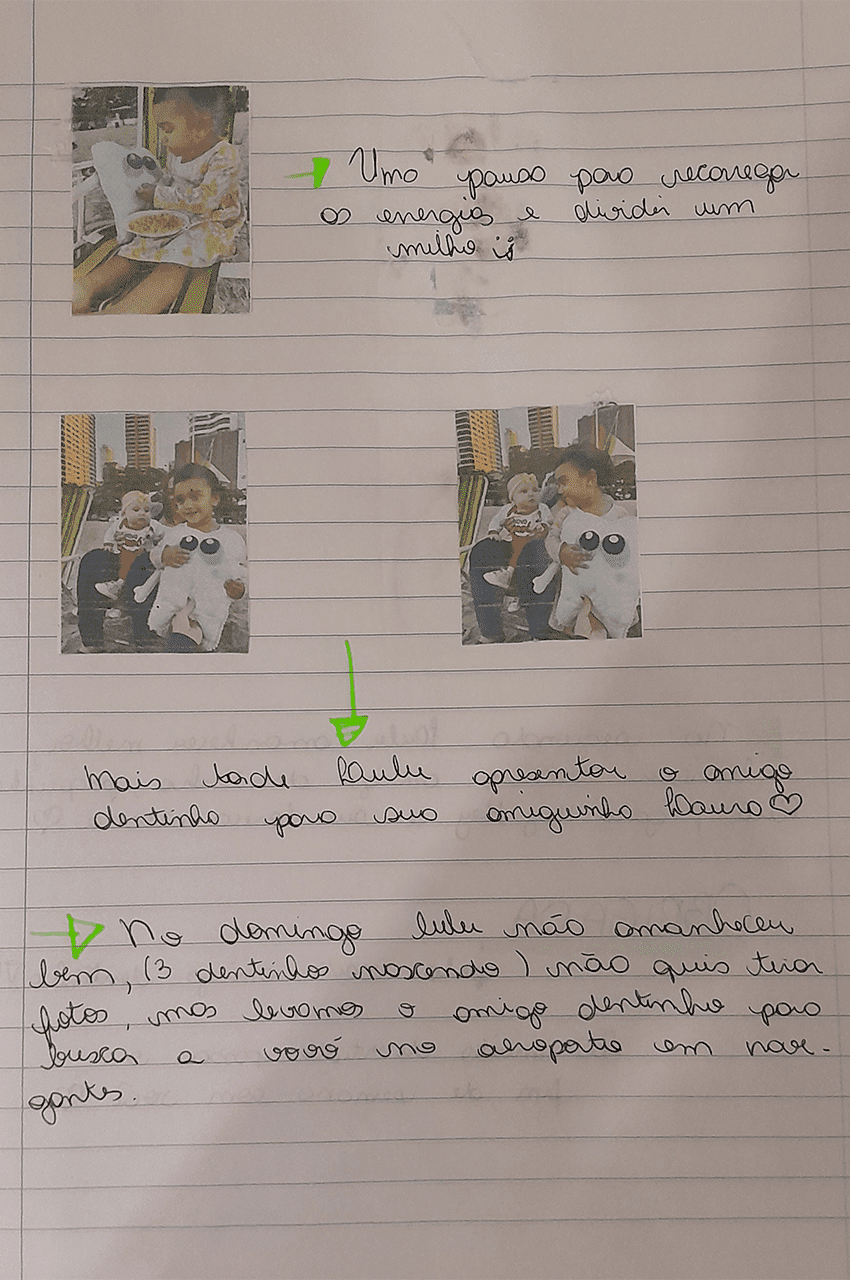 Uma pausa para recarregar
as energias e dividir um
milho
Mais tarde Lulu apresentou o amigo
dentinho para sua amiguinha Laura♡
No domingo lulu não amanheceu
bem, (3 dentinhos nascendo) não quis tirar
fotos, mas levamos o amigo dentinho para
buscar a vovó no aeroporto em nav-
gantes.